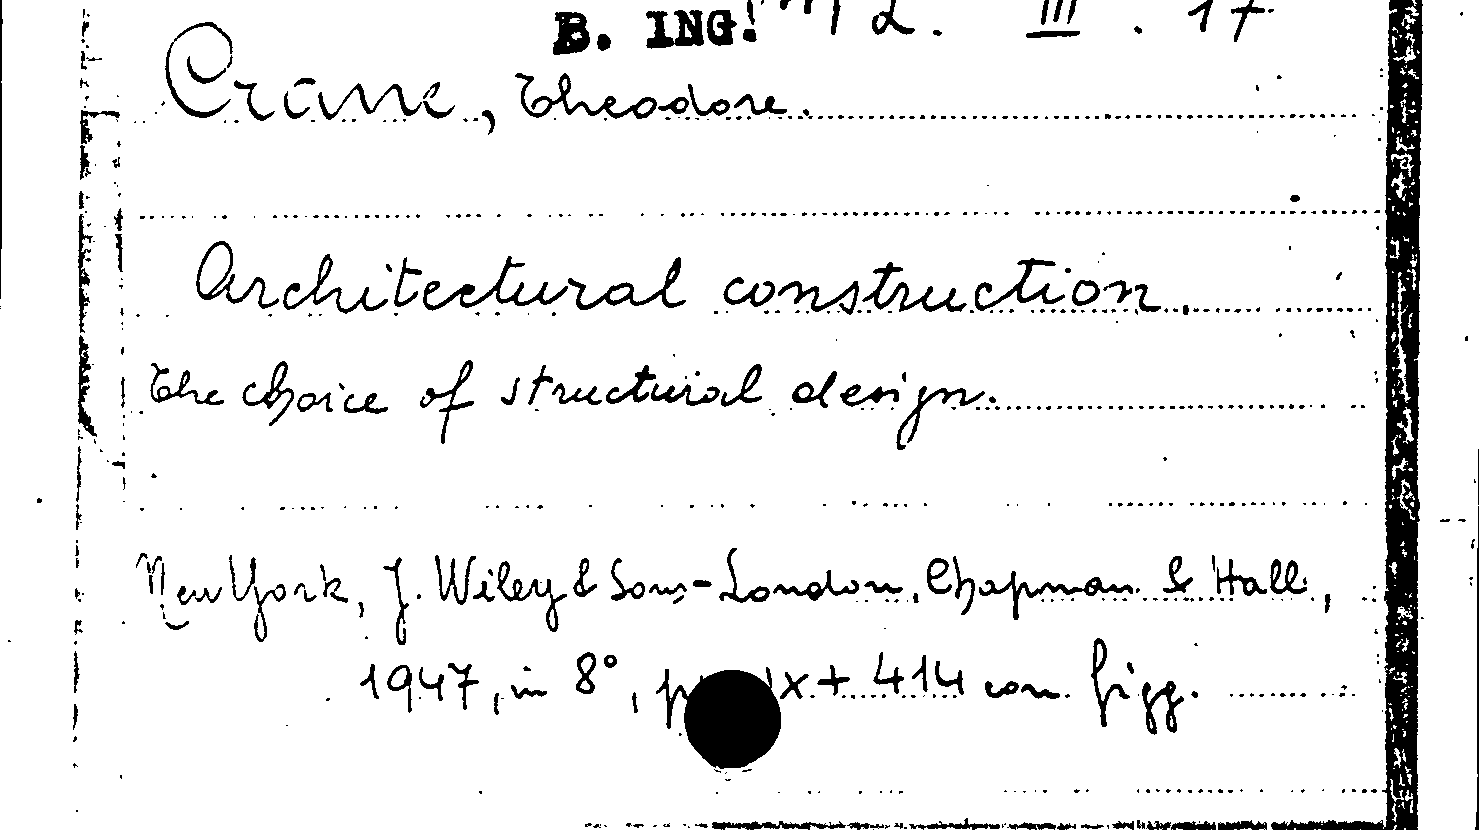 B. ING. 2. III. 17
Crane, Theodore.
Architectural construction.
The choice of structural design.
New York, J. Wiley & Sons - London, Chapman & Hall,
1947, in 8°, + 414 con figg.